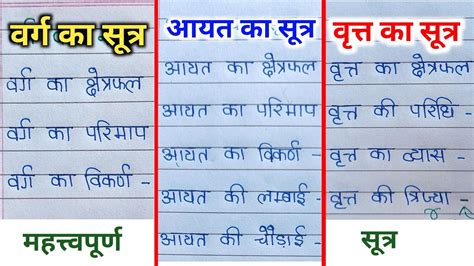 वर्ग का सूत्र
वर्ग का क्षेत्रफल
वर्ग का परिमाप
वर्ग का विकर्ण -
महत्त्वपूर्ण
आयत का सूत्र
आयत का क्षेत्रफल
आयत का परिमाप
आयत का विकर्ण -
आयत की लम्बाई -
आयत की चौड़ाई -
वृत्त का सूत्र
वृत्त का क्षेत्रफल
वृत्त की परिधि -
वृत्त का व्यास -
वृत्त की त्रिज्या -
सूत्र